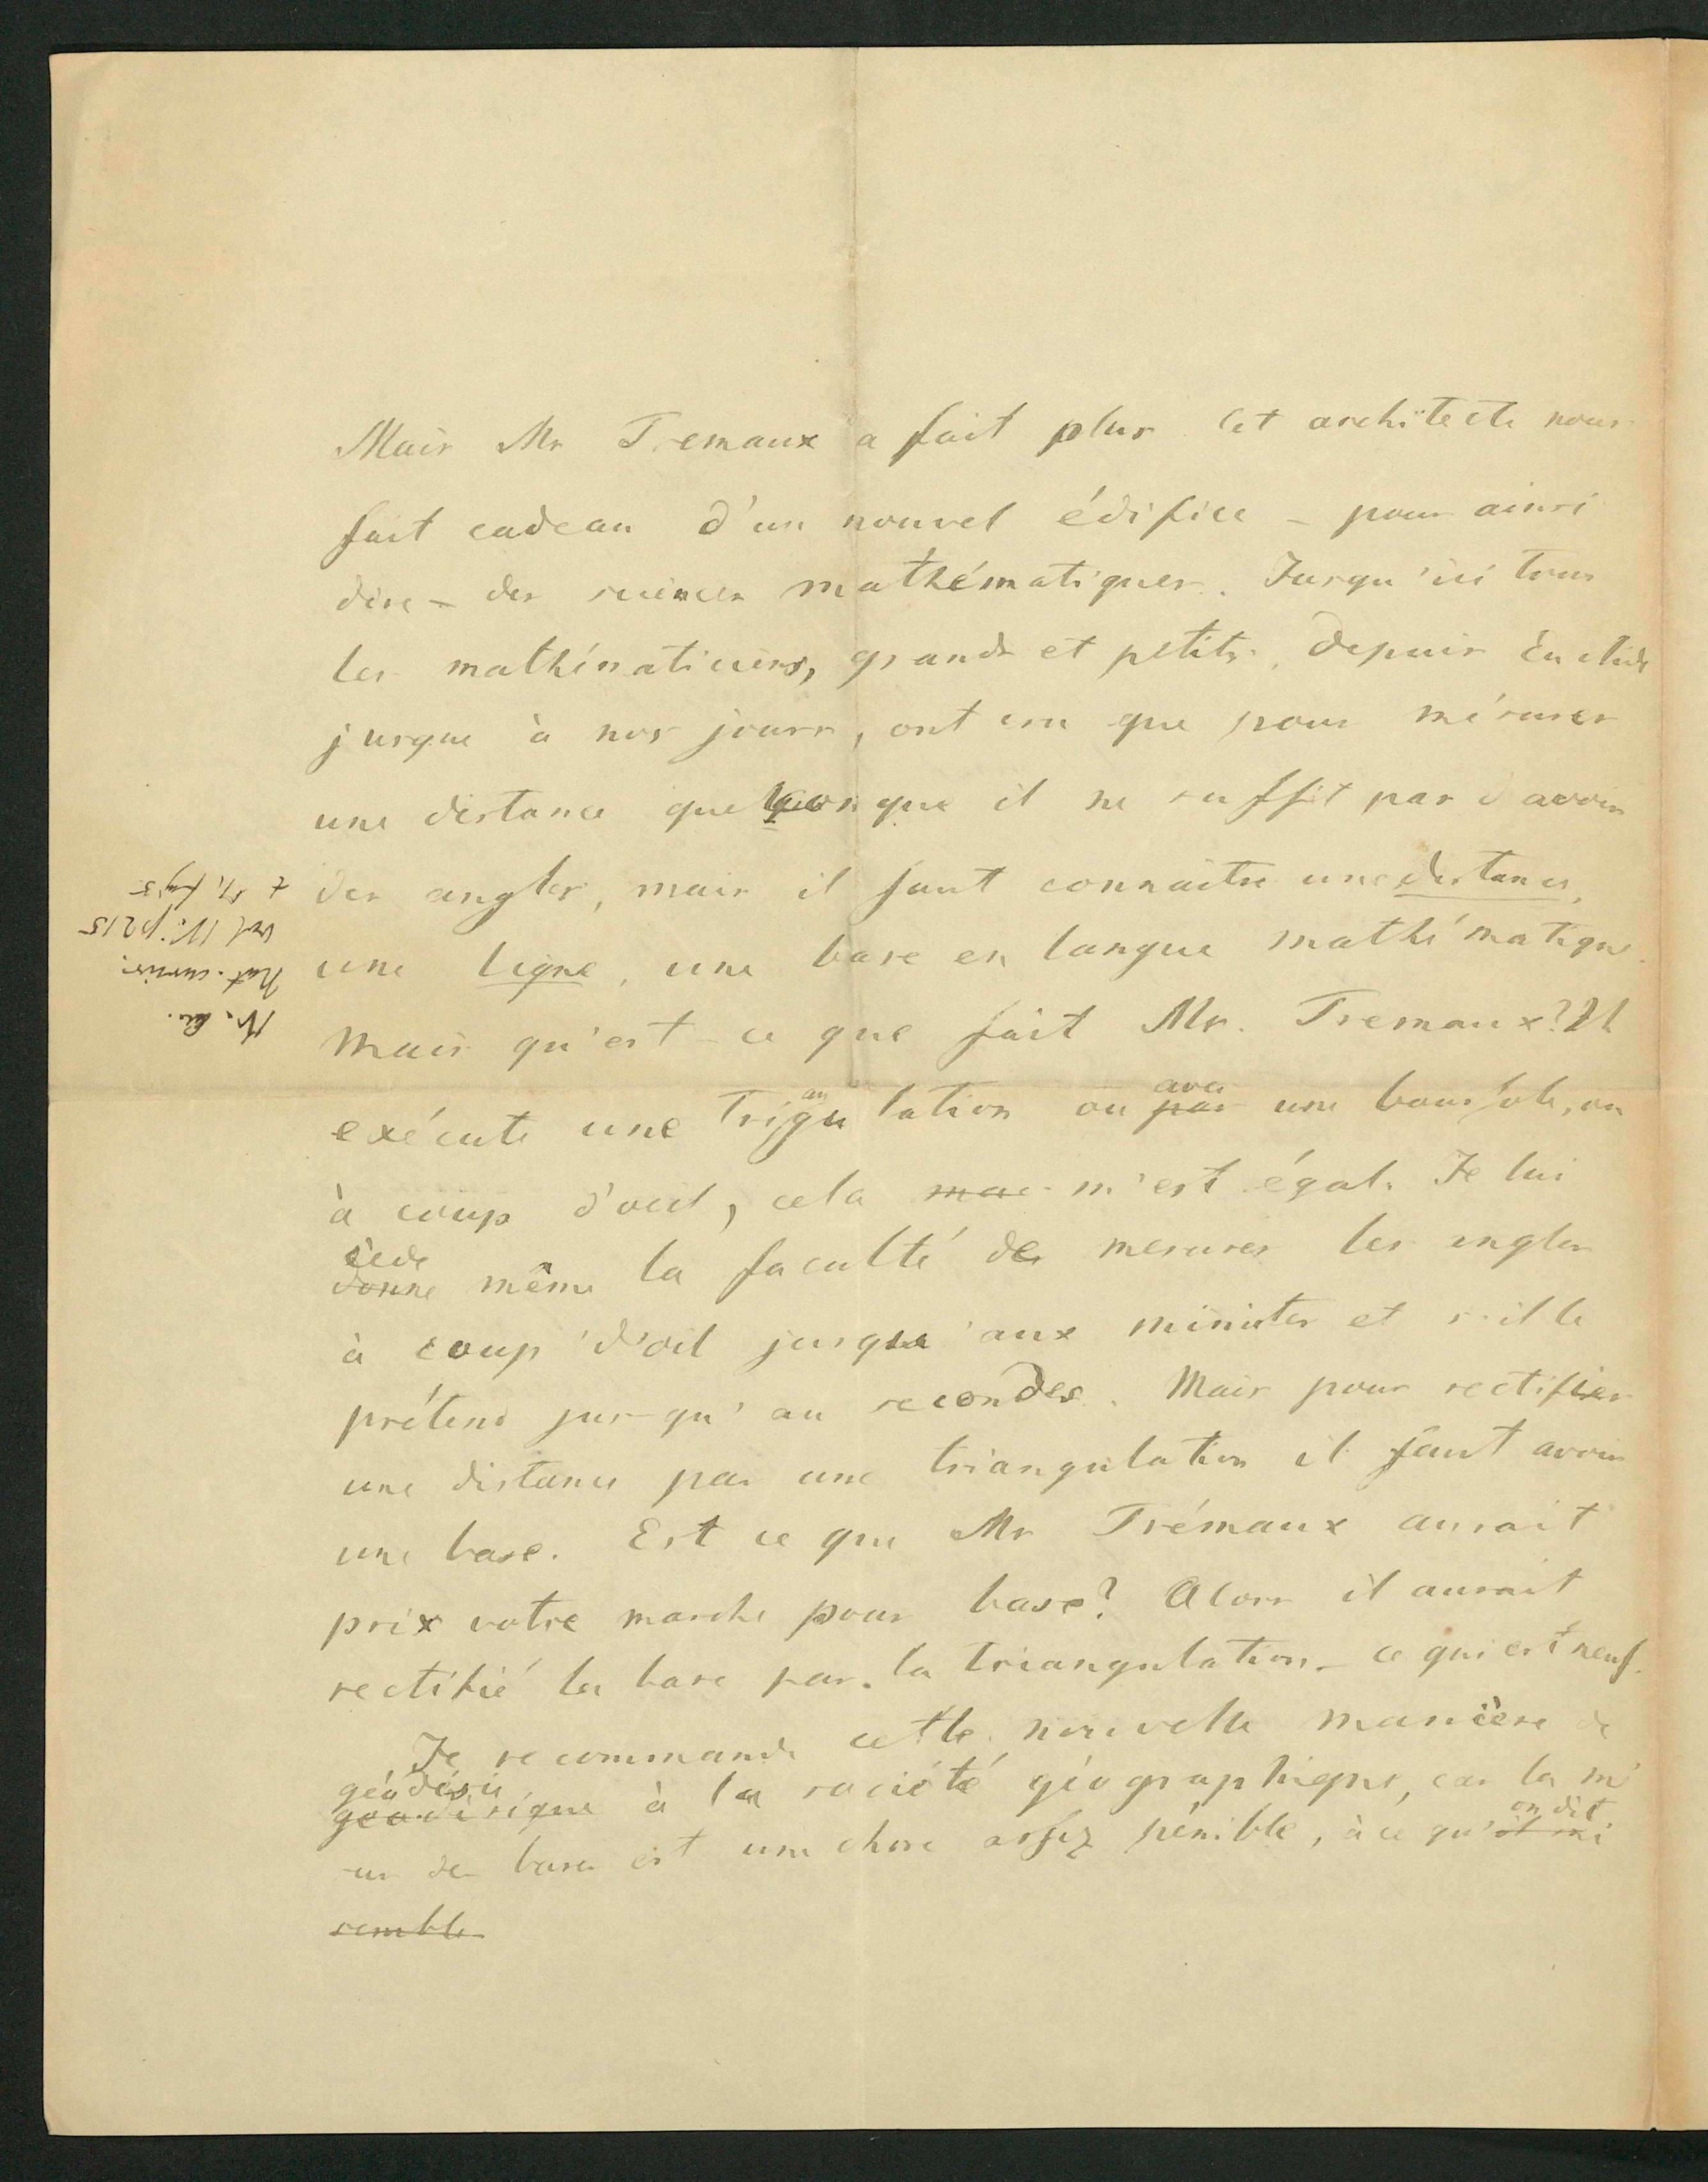 Mais Mr Tremaux a fait plus. Cet architecte nous
fait cadeau d'un nouvel édifice - pour ainsi
dire - des sciences mathématiques. Jusqu'ici tous
les mathématiciens, grands et petits, depuis Euclide
jusque à nos jours, ont cru que pour mésurer
une distance quelconque il ne suffit pas d'avoir
des angles, mais il faut connaitre une distance,
une ligne, une base en langue mathématique.
Mais qu'est-ce que fait Mr. Tremaux? Il
an avec
exécute une Trigulation ou par une boussole, ou
à coup d'oeil, cela m'est égal. Je lui
cède
donne même la faculté de mesurer les angles
à coup d'oil jusqu'aux minutes et s'il le
prétend jusqu'au secondes. Mais pour rectifier
une distance par une triangulation il faut avoir
une base. Est ce que Mr Trémaux aurait
prix votre marche pour base? Alors il aurait
rectifié la base par la triangulation - ce qui est neuf.
Je recommande cette nouvelle manière de
géodésie
geodesique à la société géographique, car la mé
on dit
sur des bases est une chose assez pénible, à ce qu'il me
semble
Nat. curios.
vol IV. p 215